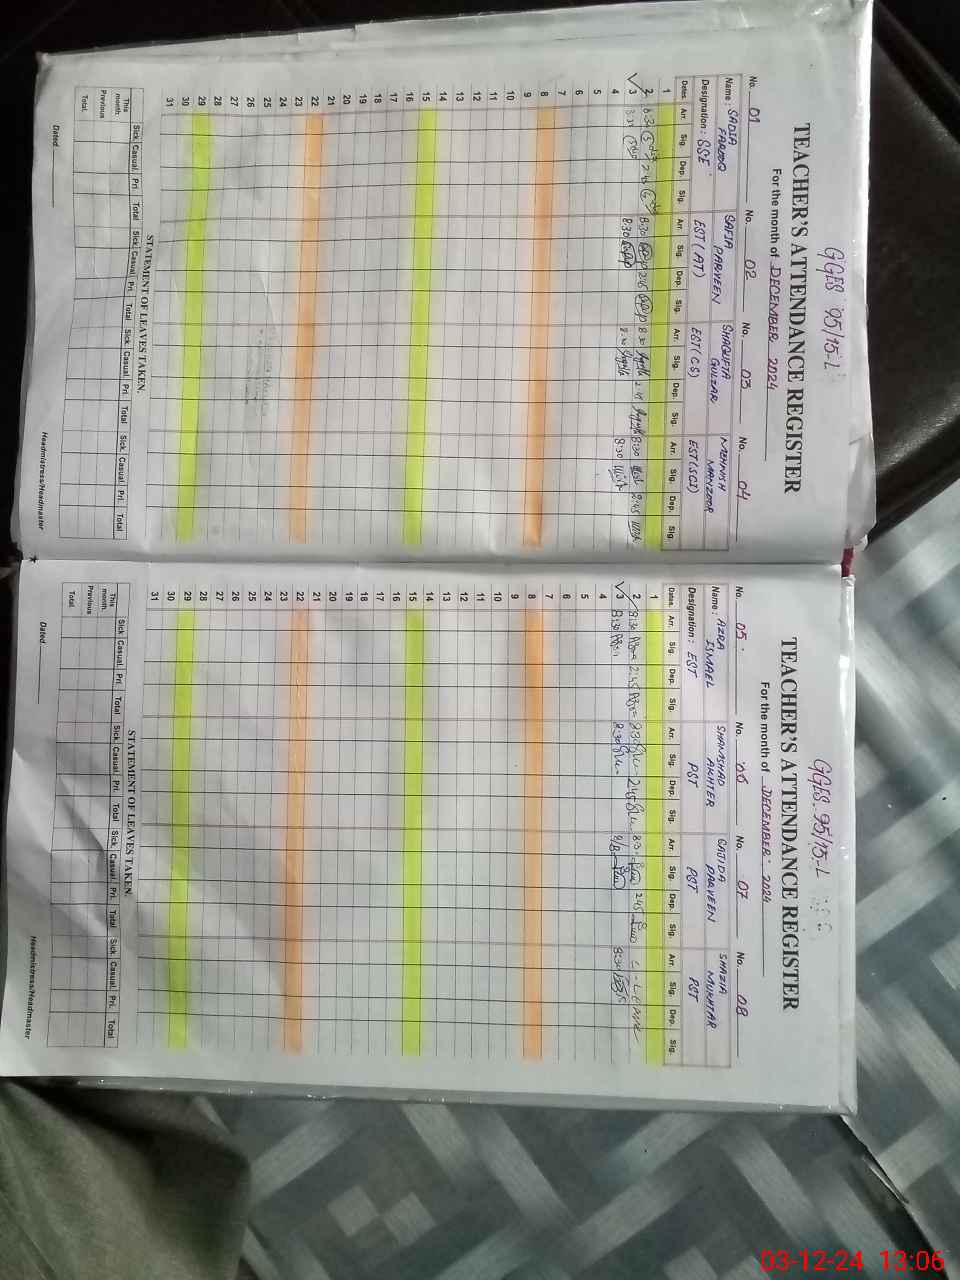 GGES 95/15-L
TEACHER'S ATTENDANCE REGISTER
For the month of DECEMBER 2024
No. 01 No. 02 No. 03 No. 04
Name: SADIA FAROOQ SAFIA PARVEEN SHAGUFTA GULZAR MEHNISH MANZOOR
Designation: SSE EST(AT) EST(CS) EST(SCI)
Dates. Arr. Sig. Dep. Sig. Arr. Sig. Dep. Sig. Arr. Sig. Dep. Sig. Arr. Sig. Dep. Sig.
1
2 8:30 2:45 8:30 2:45 8:30 2:45 8:30 2:45
3 8:30 8:30 8:30
4
5
6
7
8
9
10
11
12
13
14
15
16
17
18
19
20
21
22
23
24
25
26
27
28
29
30
31
STATEMENT OF LEAVES TAKEN.
Sick. Casual. Pri. Total Sick. Casual. Pri. Total Sick. Casual. Pri. Total Sick. Casual. Pri. Total
This month.
Previous
Total.
Dated Headmistress/Headmaster
GGES. 95/15-L
TEACHER'S ATTENDANCE REGISTER
For the month of DECEMBER: 2024
No. 05. No. 06 No. 07 No. 08
Name: AZRA ISMAEL SHAMSHAD AKHTER SAJIDA PARVEEN SHAZIA MUKHTAR
Designation: EST PST PST PST
Dates. Arr. Sig. Dep. Sig. Arr. Sig. Dep. Sig. Arr. Sig. Dep. Sig. Arr. Sig. Dep. Sig.
1
2 8:30 2:45 8:30 2:45 8:30 2:45 Leave
3 8:30 8:30 8:30
4
5
6
7
8
9
10
11
12
13
14
15
16
17
18
19
20
21
22
23
24
25
26
27
28
29
30
31
STATEMENT OF LEAVES TAKEN.
Sick. Casual. Pri. Total Sick. Casual. Pri. Total Sick. Casual. Pri. Total Sick. Casual. Pri. Total
This month.
Previous
Total.
Dated Headmistress/Headmaster
03-12-24 13:06